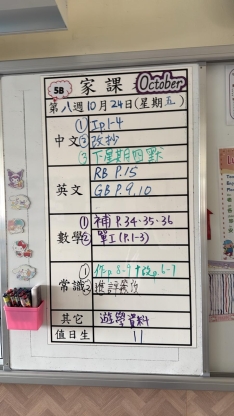 5B 家課 October
第八週10月24日(星期五)
中文 ① Jp.1-4
② 改抄
③ 下星期四默
英文 RB P.15
GB P.9,10
數學 ① 補 P.34-35-36
② 單工(P.1-3)
常識 ① 作p.8-9
②
其它 遊學資料
值日生 11